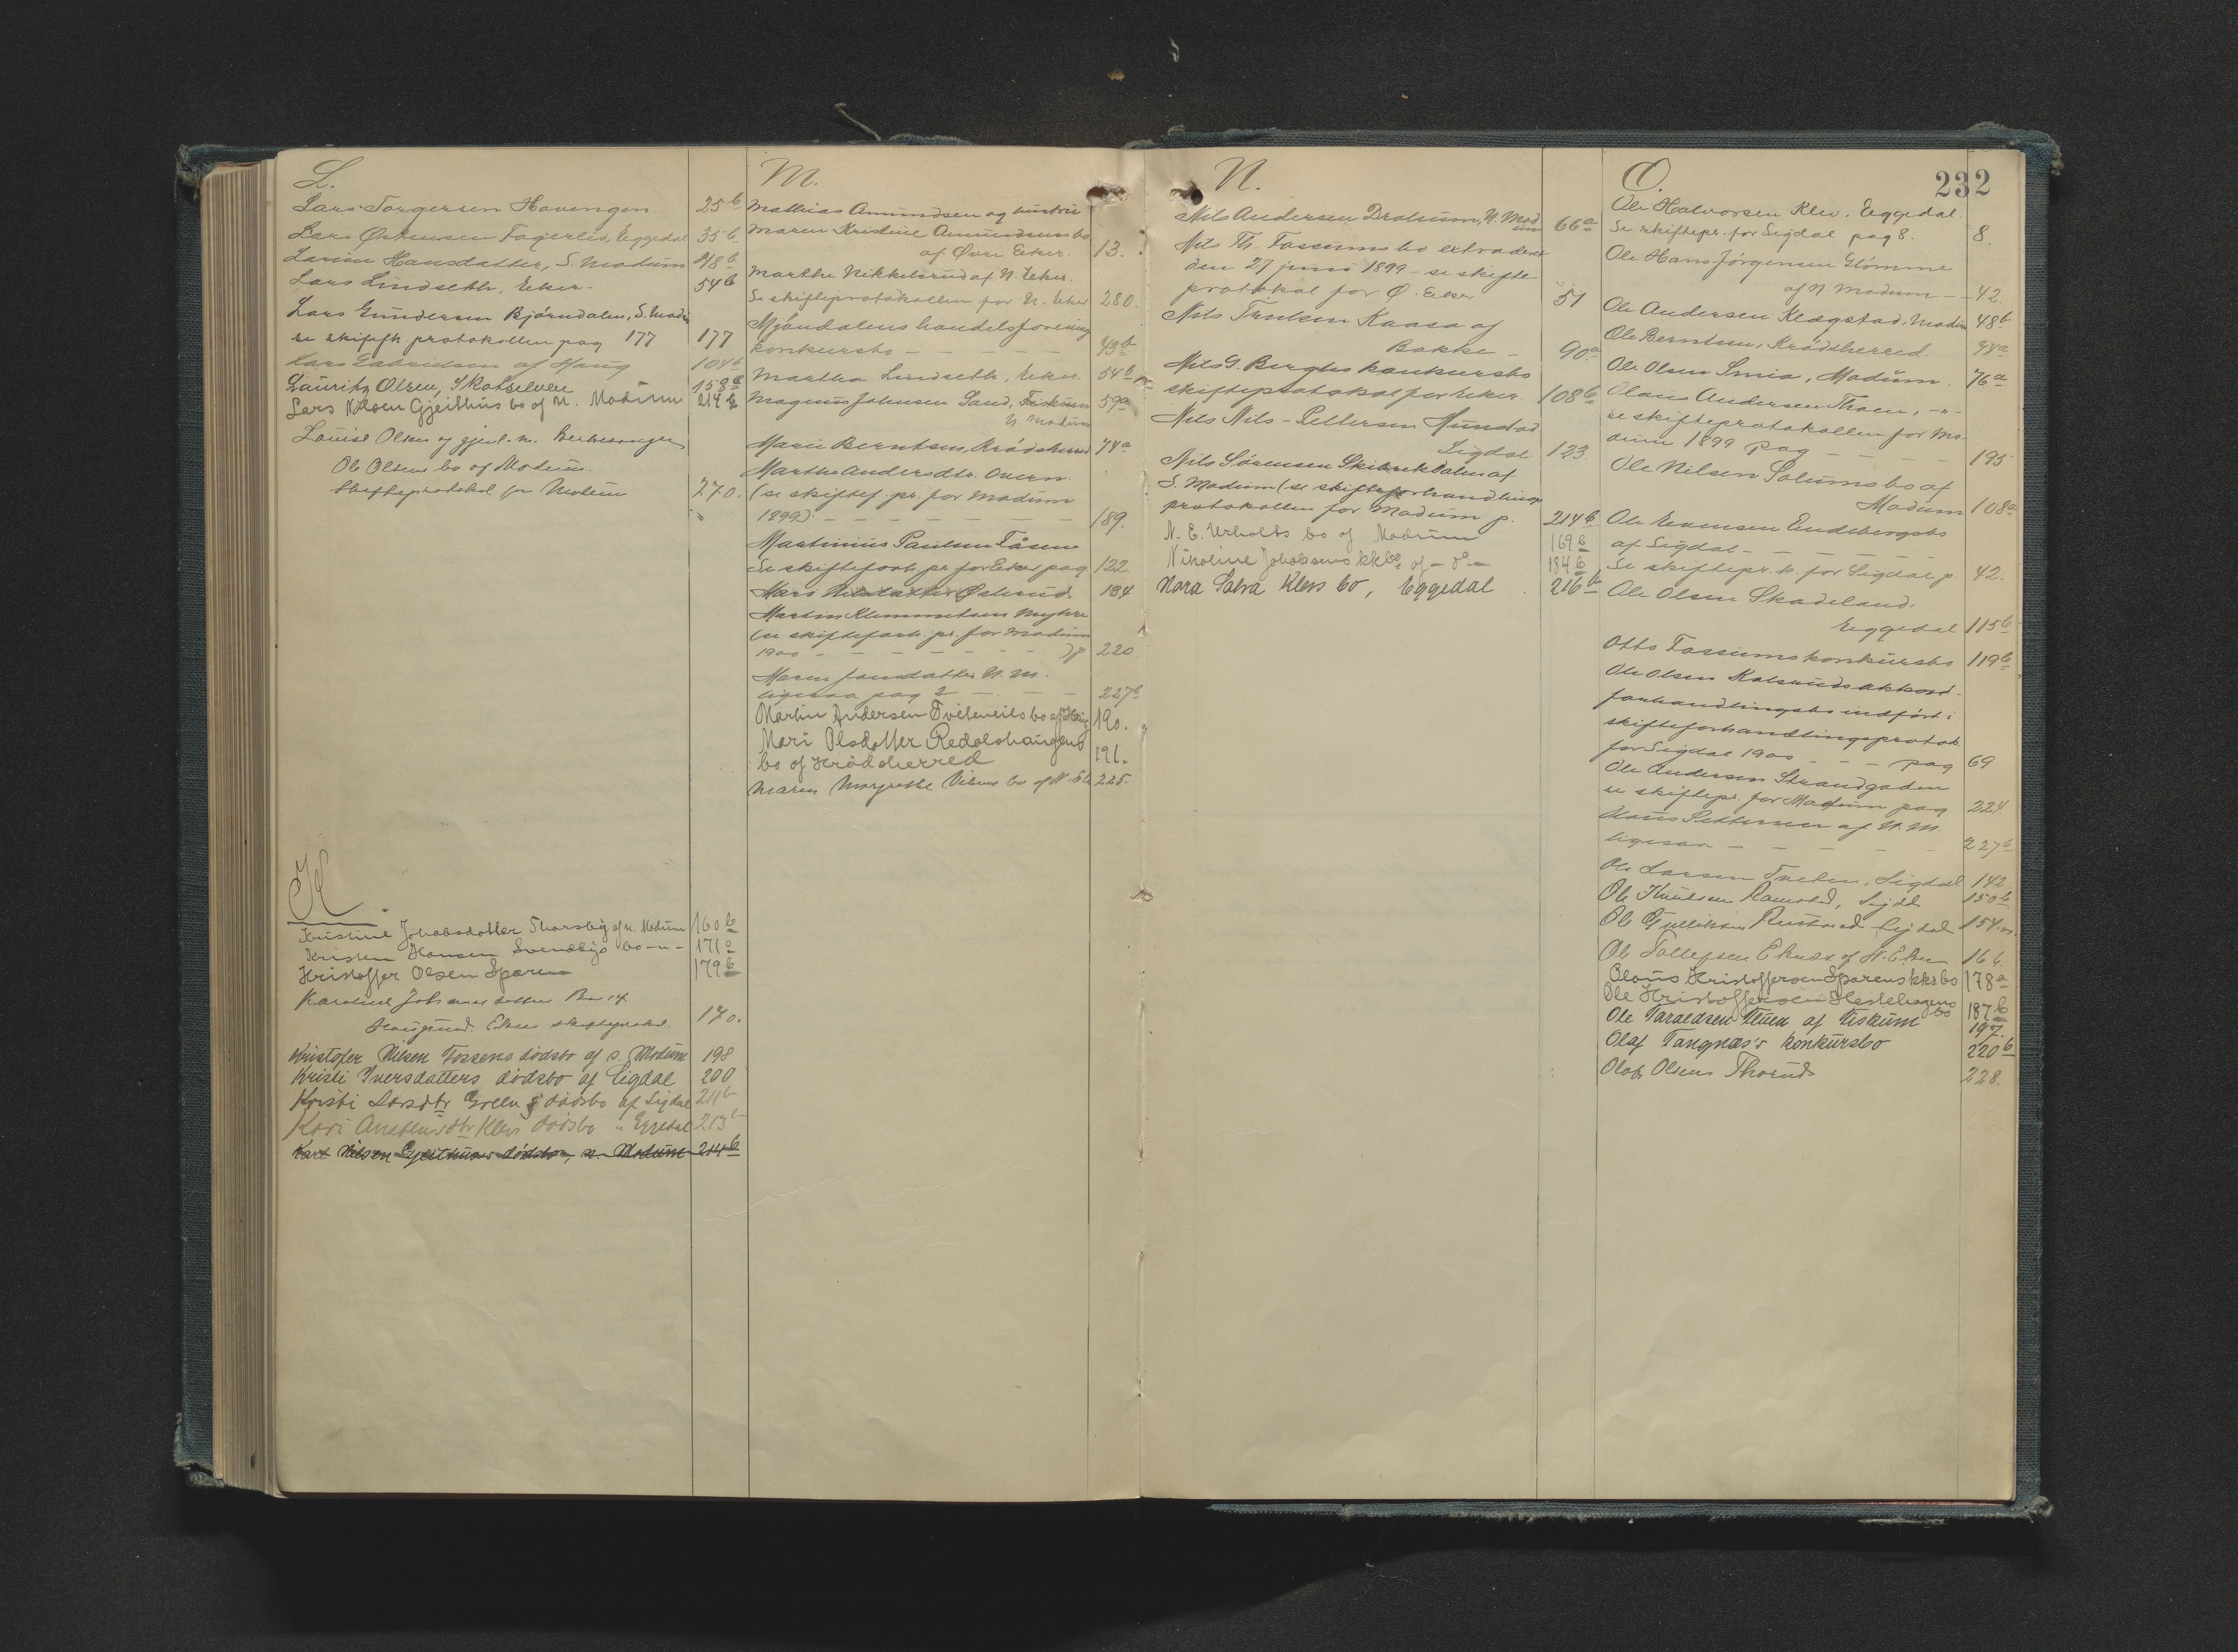 L.
Lars Torgersen Havengen 25 b
Lars Østensen Fagerlid, Eggedal 35 b
Larine Hansdatter, S. Modum 48 b
Lars Lindseth, Eker. 54 b
Lars Gundersen Bjørndalen, S. Modum
se skifteh. protokollen pag 177 177
Lars Gabrielsen af Haug 104 b
Lauritz Olsen, Skotselven 158 a
Lars Nilsen Gjeithus bo af N. Modum 214 b
Louise Olsen og gjenl. m.
Ole Olsens bo af Modum.
Skifteprotokol for Modum 270.
K
Kristine Jakobsdatter Thorsby af N. Modum 160 b
Kristen Hansen Svendbys bo -"- 171 a
Kristoffer Olsen Sparen 179 b
Karoline Johannesdatter
Haugrud. Eker skifteprotok. 170.
Kristofer Nilsen Fossens dødsbo af S. Modum 198
Kristi Iversdatters dødsbo af Sigdal 200
Kristi Larsdtr dødsbo af Sigdal 211 b
Kari Klevs dødsbo " Eggedal 213 b
Karl Nilsen Gjeithuus dødsbo, N. Modum 214 b
M.
Mathias Amundsen og hustru
Maren Kristine Amundsens bo
af Øvre Eker. 13.
Marthe Nikkelsrud af N. Eker.
Se skifteprotokollen for N. Eker 280.
Mjøndalens handelsforening
konkursbo - - - - - 43 b
Martha Lindseth, Eker. 54 b
Magnus Johnsen Sand, Fiskum 59 a
N. Modum
Marie Berntsen, Krødsherred 74 a
Marthe Andersdtr. Overn.
(se skiftef. pr. for Modum
1899): - - - - - - - 189.
Martinius Paulsen Tåsen
Se skifteforh. pr for Eker pag 122.
Mari Østrud 184
Martin Klemmetsen Myhre
(se skifteforh. pr. for Modum
1900 - - - - - - - ) p 220
Maren Jonsdatter N. M.
ligesaa pag 2 - - - 227 b
Martin Andersen Tveteneits bo af Haug 190.
Mari Olsdatter Redalshaugens
bo af Krødsherred 191.
Maren Margrethe bo af N. Eker 225.
N.
Nils Andersen Drolsum, N. Mod
um 66 a
Nils Th. Fossums bo extraderet
den 27 juni 1899 - se skifte
protokol for Ø. Eker 51
Nils Trulsen Kaasa af
Bakke - 90 a
Nils G. Berghs konkursbo
skifteprotokol for Eker. 108 b
Nils Nils-Pettersen Hunstad
Sigdal 123.
Nils Sørensen Skibrekdalen af
S. Modum (se skifteforhandlings
protokollen for Modum p. 214 b
N. E. Urholts bo af Modum 169 b
Nikoline Jakobsens kkbo af - d° - 184 b
Nora Salva Klevs bo, Eggedal 216 b
O.
232
Ole Halvorsen Klev, Eggedal.
Se skiftepr. for Sigdal pag 8. 8
Ole Hans-Jørgensen Glømme
af N Modum - - 42.
Ole Andersen Klægstad, Modum 48 b
Ole Berntsen, Krødsherred. 74 a
Ole Olsen Smia, Modum. 76 a
Olaus Andersen Thoen, -"-
se skifteprotokollen for Mo-
dum 1899 pag - - - - 195
Ole Nilsen Solums bo af
Modum 108 a
Ole Evensen Endebergsbo
af Sigdal - - - - -
Se skiftepr. h. for Sigdal p. 42.
Ole Olsen Skadeland,
Eggedal 115 b
Otto Fossums konkursbo 119 b
Ole Olsen Kolsruds akkord-
forhandlingsbo indført i
skifteforhandlingsprotok.
for Sigdal 1900 - - - pag 69
Ole Andersen Strandgaden
se skiftepr. for Modum pag 224.
Pettersen af N. M.
ligesaa - - - - - 227 b
Ole Larsen Tveten, Sigdal 142
Ole Knudsen Ramstad, Sigdal 150 b
Ole Gulliksen Rustand Sigdal 154 a.
Ole Tollefsen af N. Eker 166.
Olaus Kristoffersen Sparens kks bo 178 a
Ole Kristoffersen Hestehagens bo 187 b
Ole Taraldsen Thuen af Fiskum 197.
Olaf Tangnæs's konkursbo 220 b
Olaf Olsens Thorud 228.